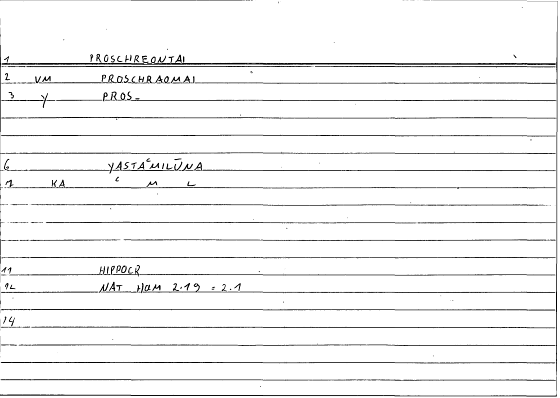 1 PROSCHREONTAI
2 VM PROSCHRAOMAI
3 Y PROS_
6 YASTAʿMILŪNA
7 KA ʿ M L
11 HIPPOCR
12 NAT HOM 2.19 = 2.1
14